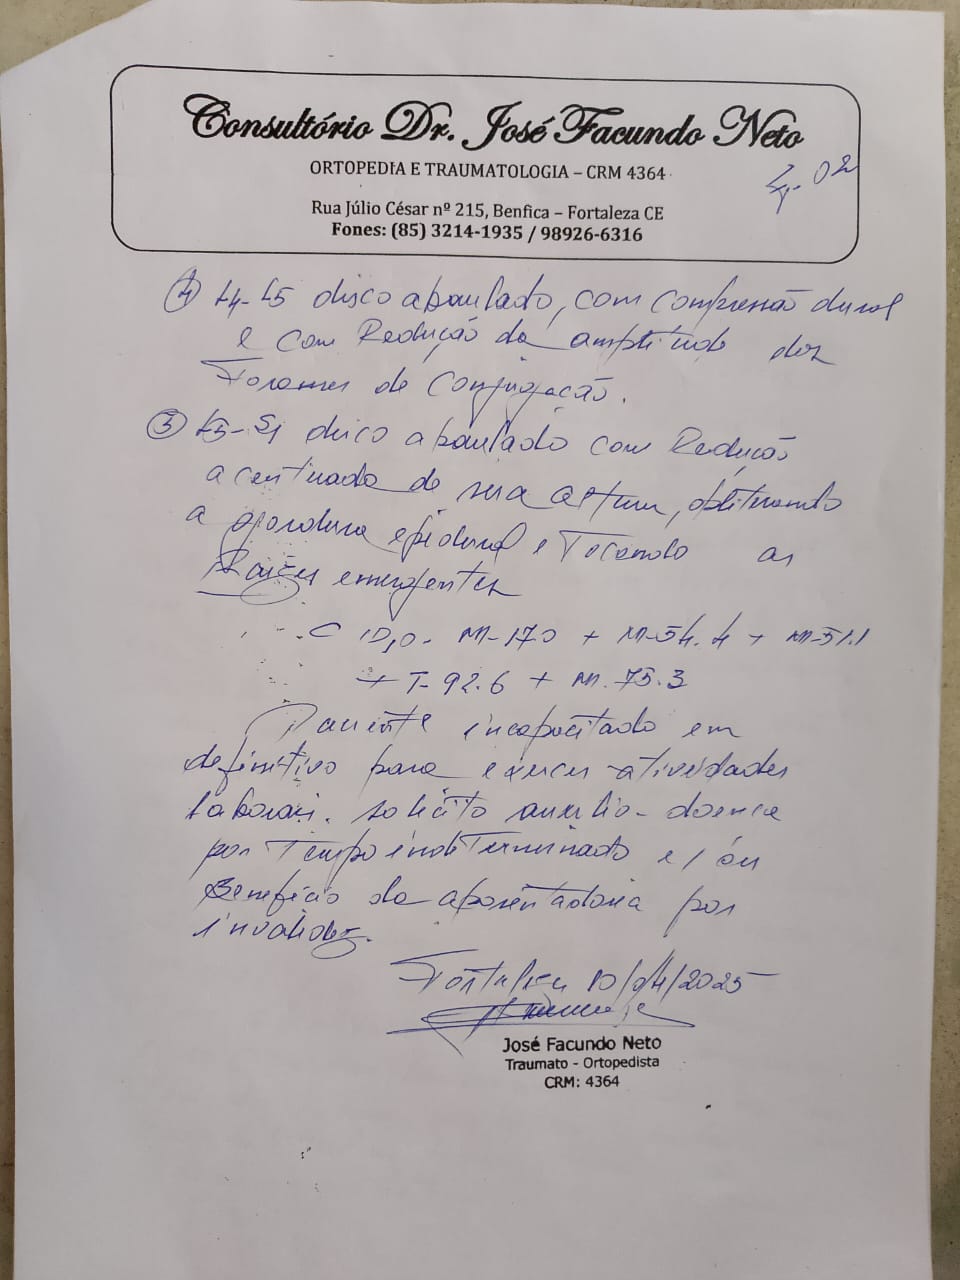 Consultório Dr. José Facundo Neto
ORTOPEDIA E TRAUMATOLOGIA – CRM 4364
02
Rua Júlio César nº 215, Benfica – Fortaleza CE
Fones: (85) 3214-1935 / 98926-6316
④ L4-L5 disco abaulado, com compressão dural
e com Redução da amplitude dos
Forames de Conjugação.
⑤ L5-S1 disco abaulado com Redução
acentuada de sua altura, obliterando
a gordura epidural e Tocando as
Raízes emergentes
CID,o. M-170 + M-54.4 + M-51.1
+ T-92.6 + M.75.3
Paciente incapacitado em
definitivo para exercer atividades
laborais. solicito auxílio-doença
por Tempo indeterminado e/ou
Benefício da aposentadoria por
invalidez.
Fortaleza 10/04/2025
José Facundo Neto
Traumato - Ortopedista
CRM: 4364